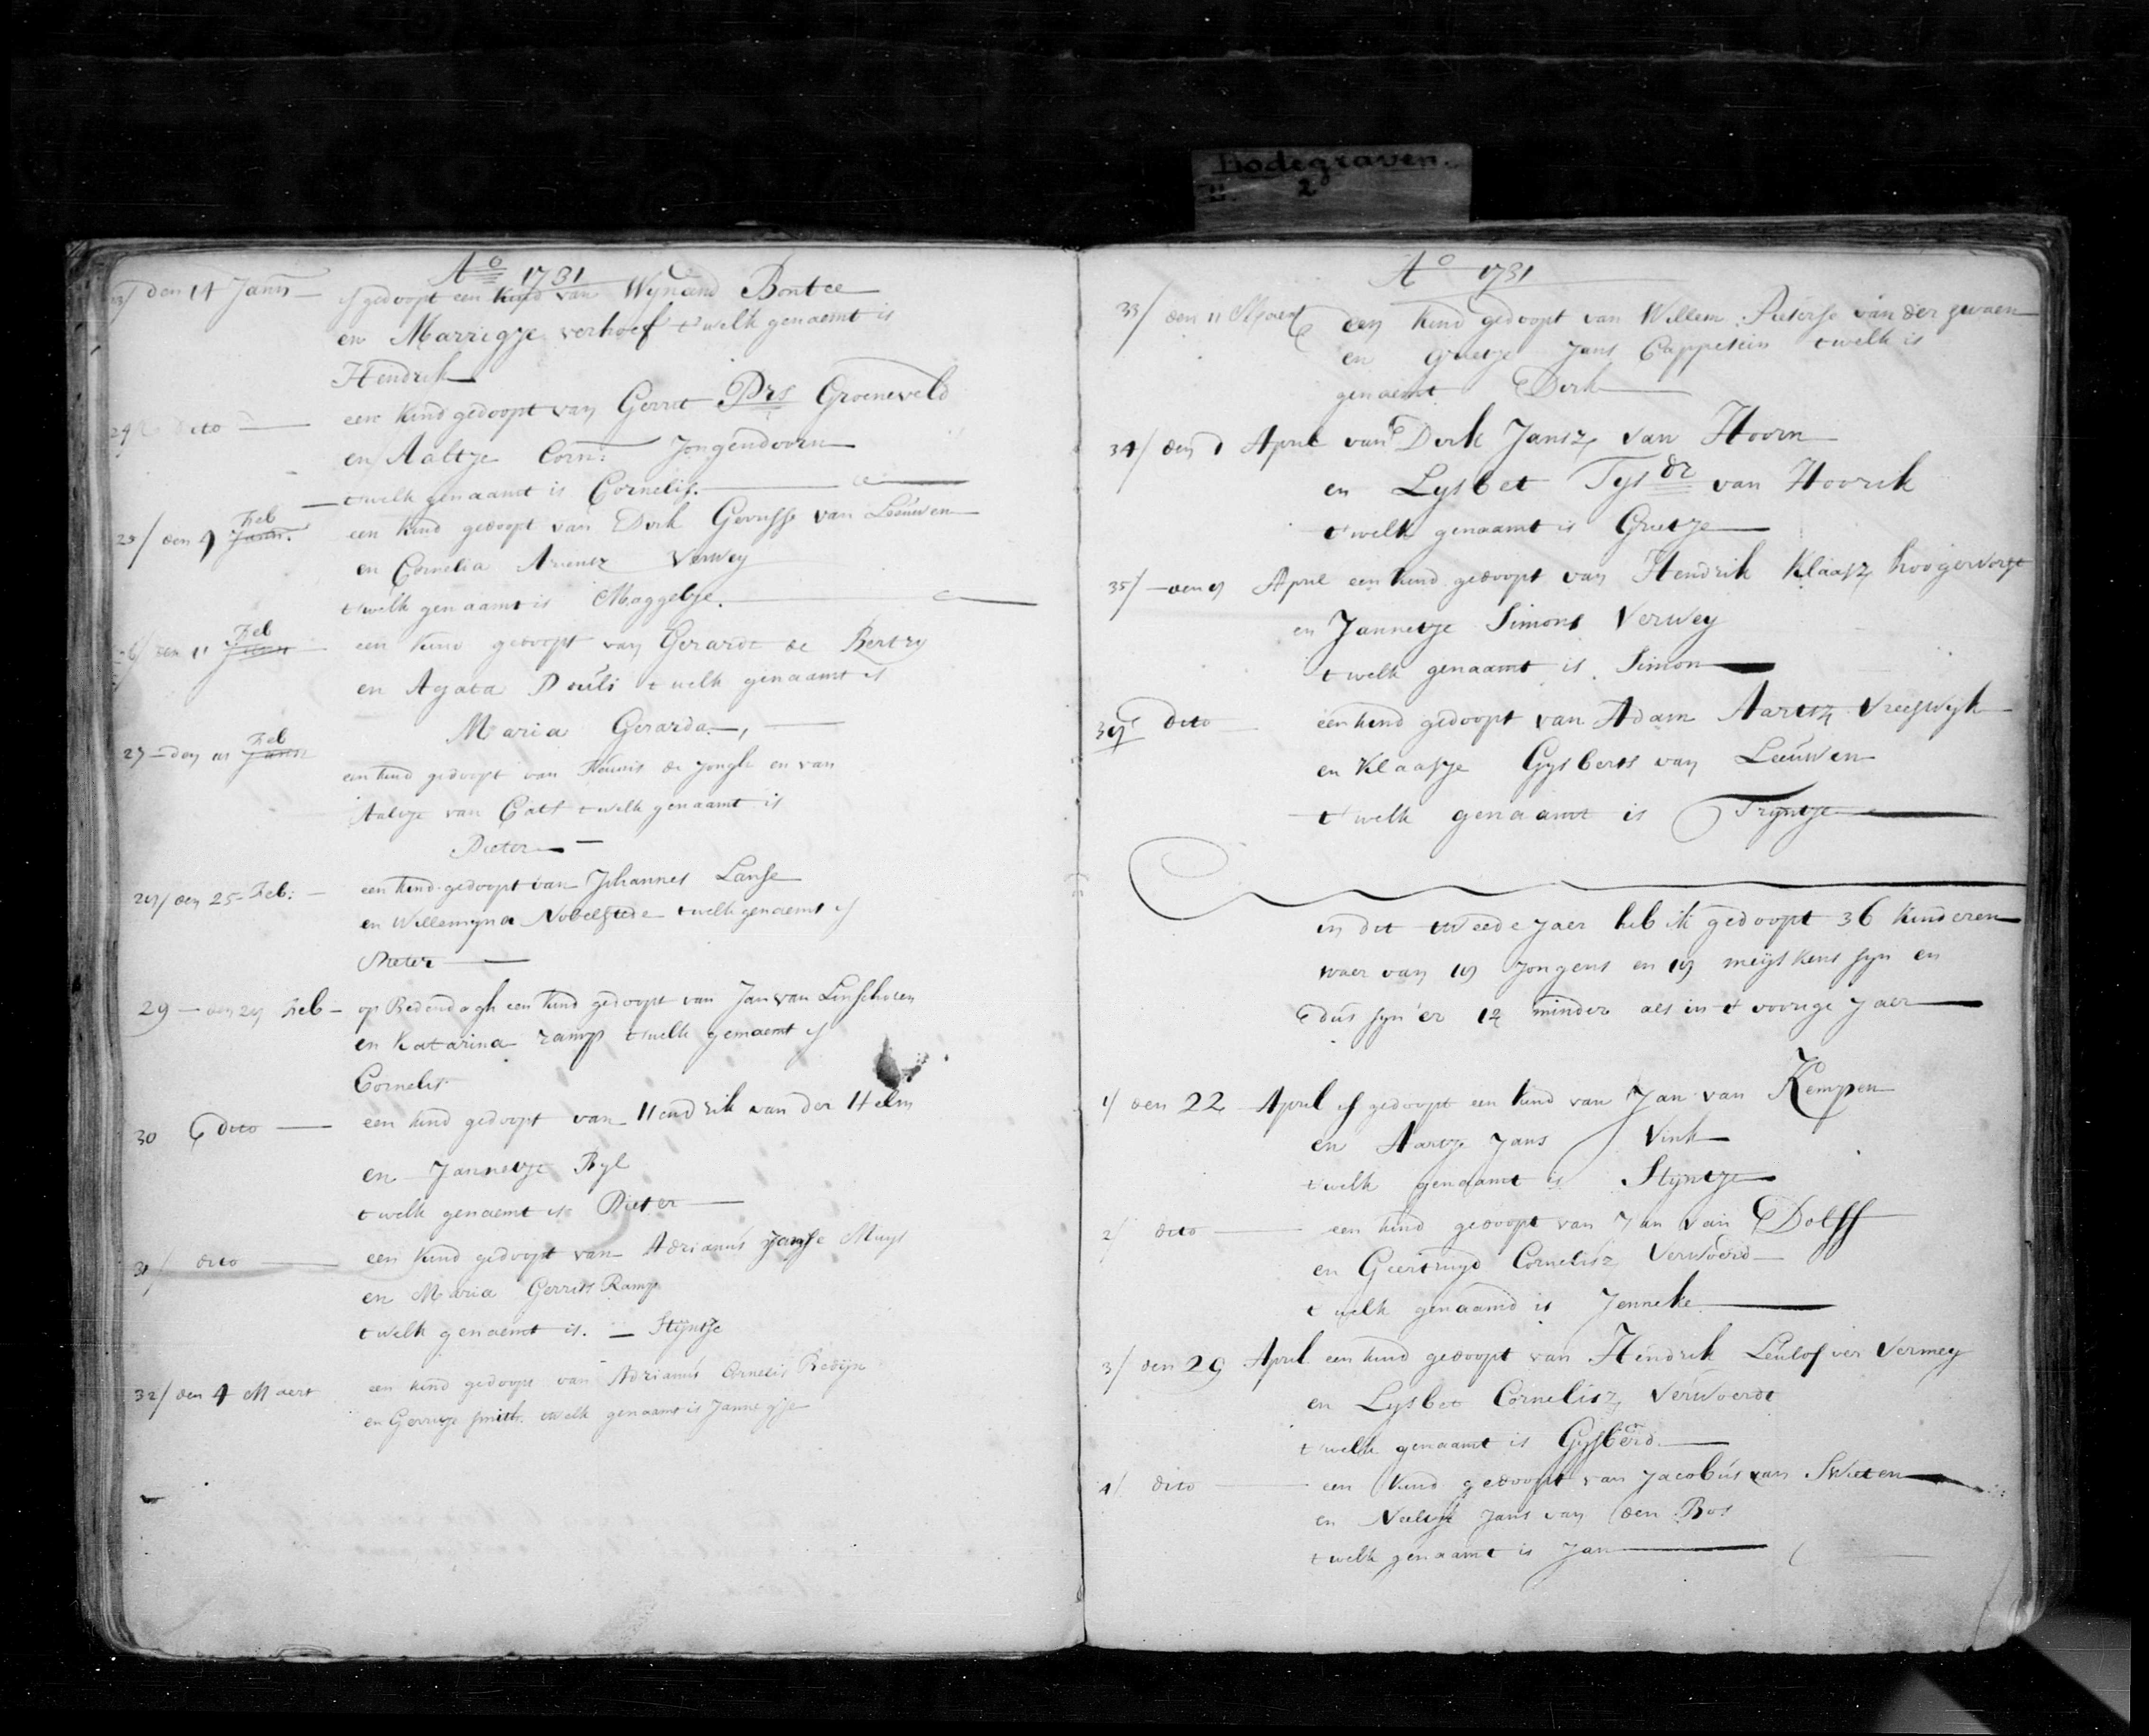 Bodegraven.
2
Ao 1731
23/ den 14 Jann is gedoopt een kind van Wynand Bontee
en Marrigje verhoef t welk genaemt is
Hendrik
24 dito een kind gedoopt van Gerret Prs Groeneveld
en Aaltje Corn: Jongendoorn
t welk genaamt is Cornelis.
Feb
25/ den 4 Jann. een kind gedoopt van Dirk Gerritsse van Leeuwen
en Cornelia Arientz Verwey
t welk genaamt is Maggeltje.
Feb
26/ den 11 Jann een kind gedoopt van Gerardt de Bertry
en Agata Pouls t welk genaamt is
Maria Gerarda,
Feb
27 den Jann
een kind gedoopt van Teunis de Jongh en van
Aaltje van Catt t welk genaamt is
Pieter
28/ den 25 Feb: een kind gedoopt van Johannes Lanse
en Willemyna Nobelstede t welk genaemt is
Pieter
29 den 28 Feb op Bededagh een kind gedoopt van Jan van Linschoten
en Katarina ramp t welk genaemt is
Cornelis
30 dito een kind gedoopt van Hendrik van der Helm
en Jannetje Byl
t welk genaemt is Pieter
31/ dito een kind gedoopt van Adrianus Janse Muys
en Maria Gerrits Ramp
t welk genaemt is. Styntje
32/ den 4 Maert een kind gedoopt van Adrianus Cornelis Redijn
en Gerritje smith t welk genaamt is Jannigje
Ao 1731
33/ den 11 Maert een kind gedoopt van Willem Pieterse van der zwaen
en grietje Jans Cappesein t welk is
genaemt Dirk
34/ den 1 April van Dirk Jansz van Hoorn
en Lysbet Tys dr van Hoorik
t welk genaamt is Grietje
35/ den 8 April een kind gedoopt van Hendrik Klaasz hoogervorst
en Jannetje Simons Verwey
t welk genaamt is Simon
36 dito een kind gedoopt van Adam Aartsz Vreeswyk
en Klaasje Gysberts van Leeuwen
t welk genaamt is Tryntje
in dit tweede jaer heb ik gedoopt 36 kinderen
waer van 18 Jongens en 18 meijskens syn en
dus syn er 12 minder als in t voorige jaer
1/ den 22 April is gedoopt een kind van Jan van Kempen
en Aartje Jans Vink
t welk genaamt is Styntje
2/ dito een kind gedoopt van Jan van Dolff
en Geertruyd Cornelisz Verwoerd
t welk genaamd is Jenneke
3/ den 29 April een kind gedoopt van Hendrik Leulof ver Vermey
en Lysbet Cornelisz Verwoerdt
t welk genaamt is Gysberd
4/ dito een kind gedoopt van Jacobus van Swieten
en Neeltje Jans van den Bos
t welk genaamt is Jan